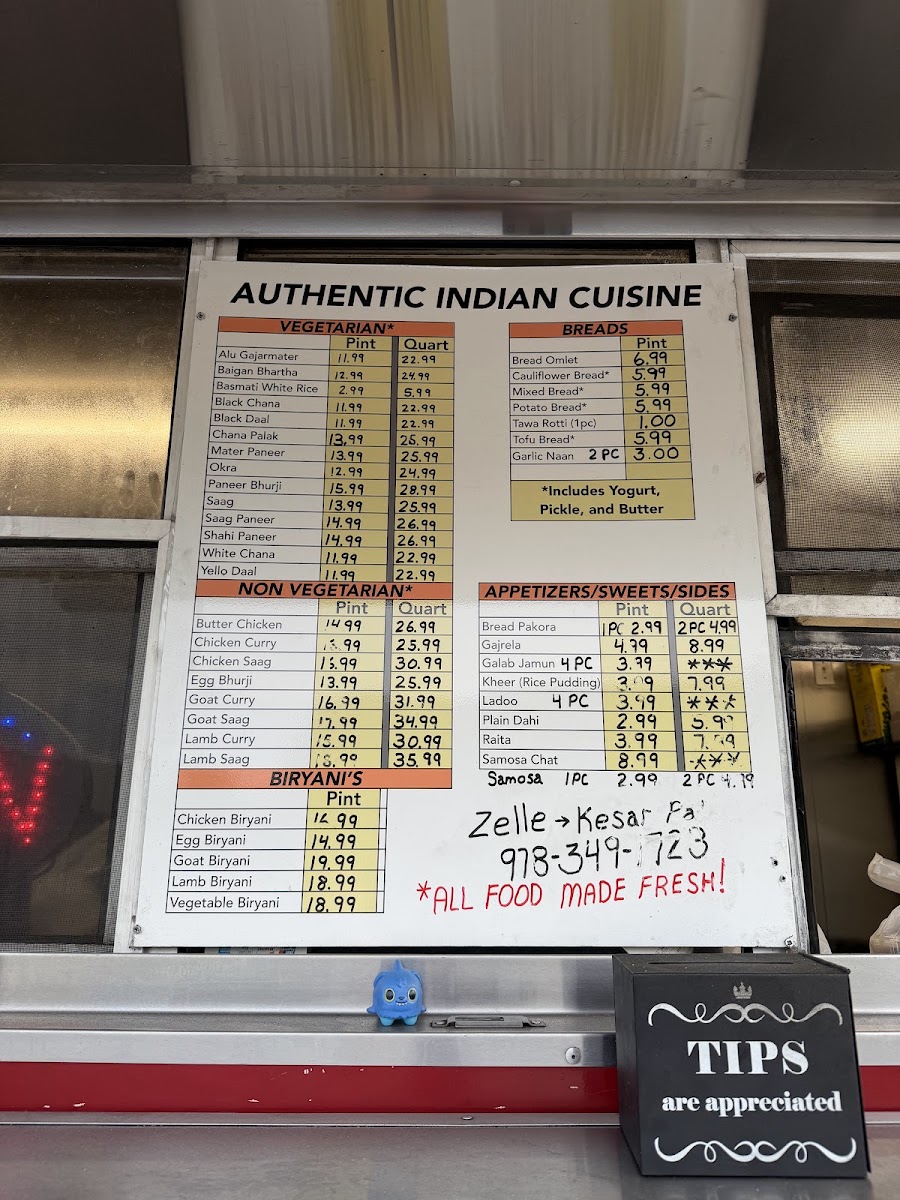 AUTHENTIC INDIAN CUISINE
VEGETARIAN*
Pint Quart
Alu Gajarmater 11.99 22.99
Baigan Bhartha 12.99 24.99
Basmati White Rice 2.99 5.99
Black Chana 11.99 22.99
Black Daal 11.99 22.99
Chana Palak 13.99 25.99
Mater Paneer 13.99 25.99
Okra 12.99 24.99
Paneer Bhurji 15.99 28.99
Saag 13.99 25.99
Saag Paneer 14.99 26.99
Shahi Paneer 14.99 26.99
White Chana 11.99 22.99
Yello Daal 11.99 22.99
NON VEGETARIAN*
Pint Quart
Butter Chicken 14 99 26.99
Chicken Curry 25.99
Chicken Saag 30.99
Egg Bhurji 13.99 25.99
Goat Curry 16.99 31.99
Goat Saag 17.99 34.99
Lamb Curry 15.99 30.99
Lamb Saag 35.99
BIRYANI'S
Pint
Chicken Biryani
Egg Biryani 14.99
Goat Biryani 19.99
Lamb Biryani 18.99
Vegetable Biryani 18.99
BREADS
Pint
Bread Omlet 6.99
Cauliflower Bread* 5.99
Mixed Bread* 5.99
Potato Bread* 5.99
Tawa Rotti (1pc) 1.00
Tofu Bread* 5.99
Garlic Naan 2 PC 3.00
*Includes Yogurt,
Pickle, and Butter
APPETIZERS/SWEETS/SIDES
Pint Quart
Bread Pakora 1PC 2.99 2PC 4.99
Gajrela 4.99 8.99
Galab Jamun 4 PC 3.99 ***
Kheer (Rice Pudding) 7.99
Ladoo 4 PC 3.99 ***
Plain Dahi 2.99 5.99
Raita 3.99
Samosa Chat 8.99 ***
Samosa 1PC 2.99 2 PC
Zelle → Kesar
978-349-1723
*ALL FOOD MADE FRESH!
TIPS
are appreciated